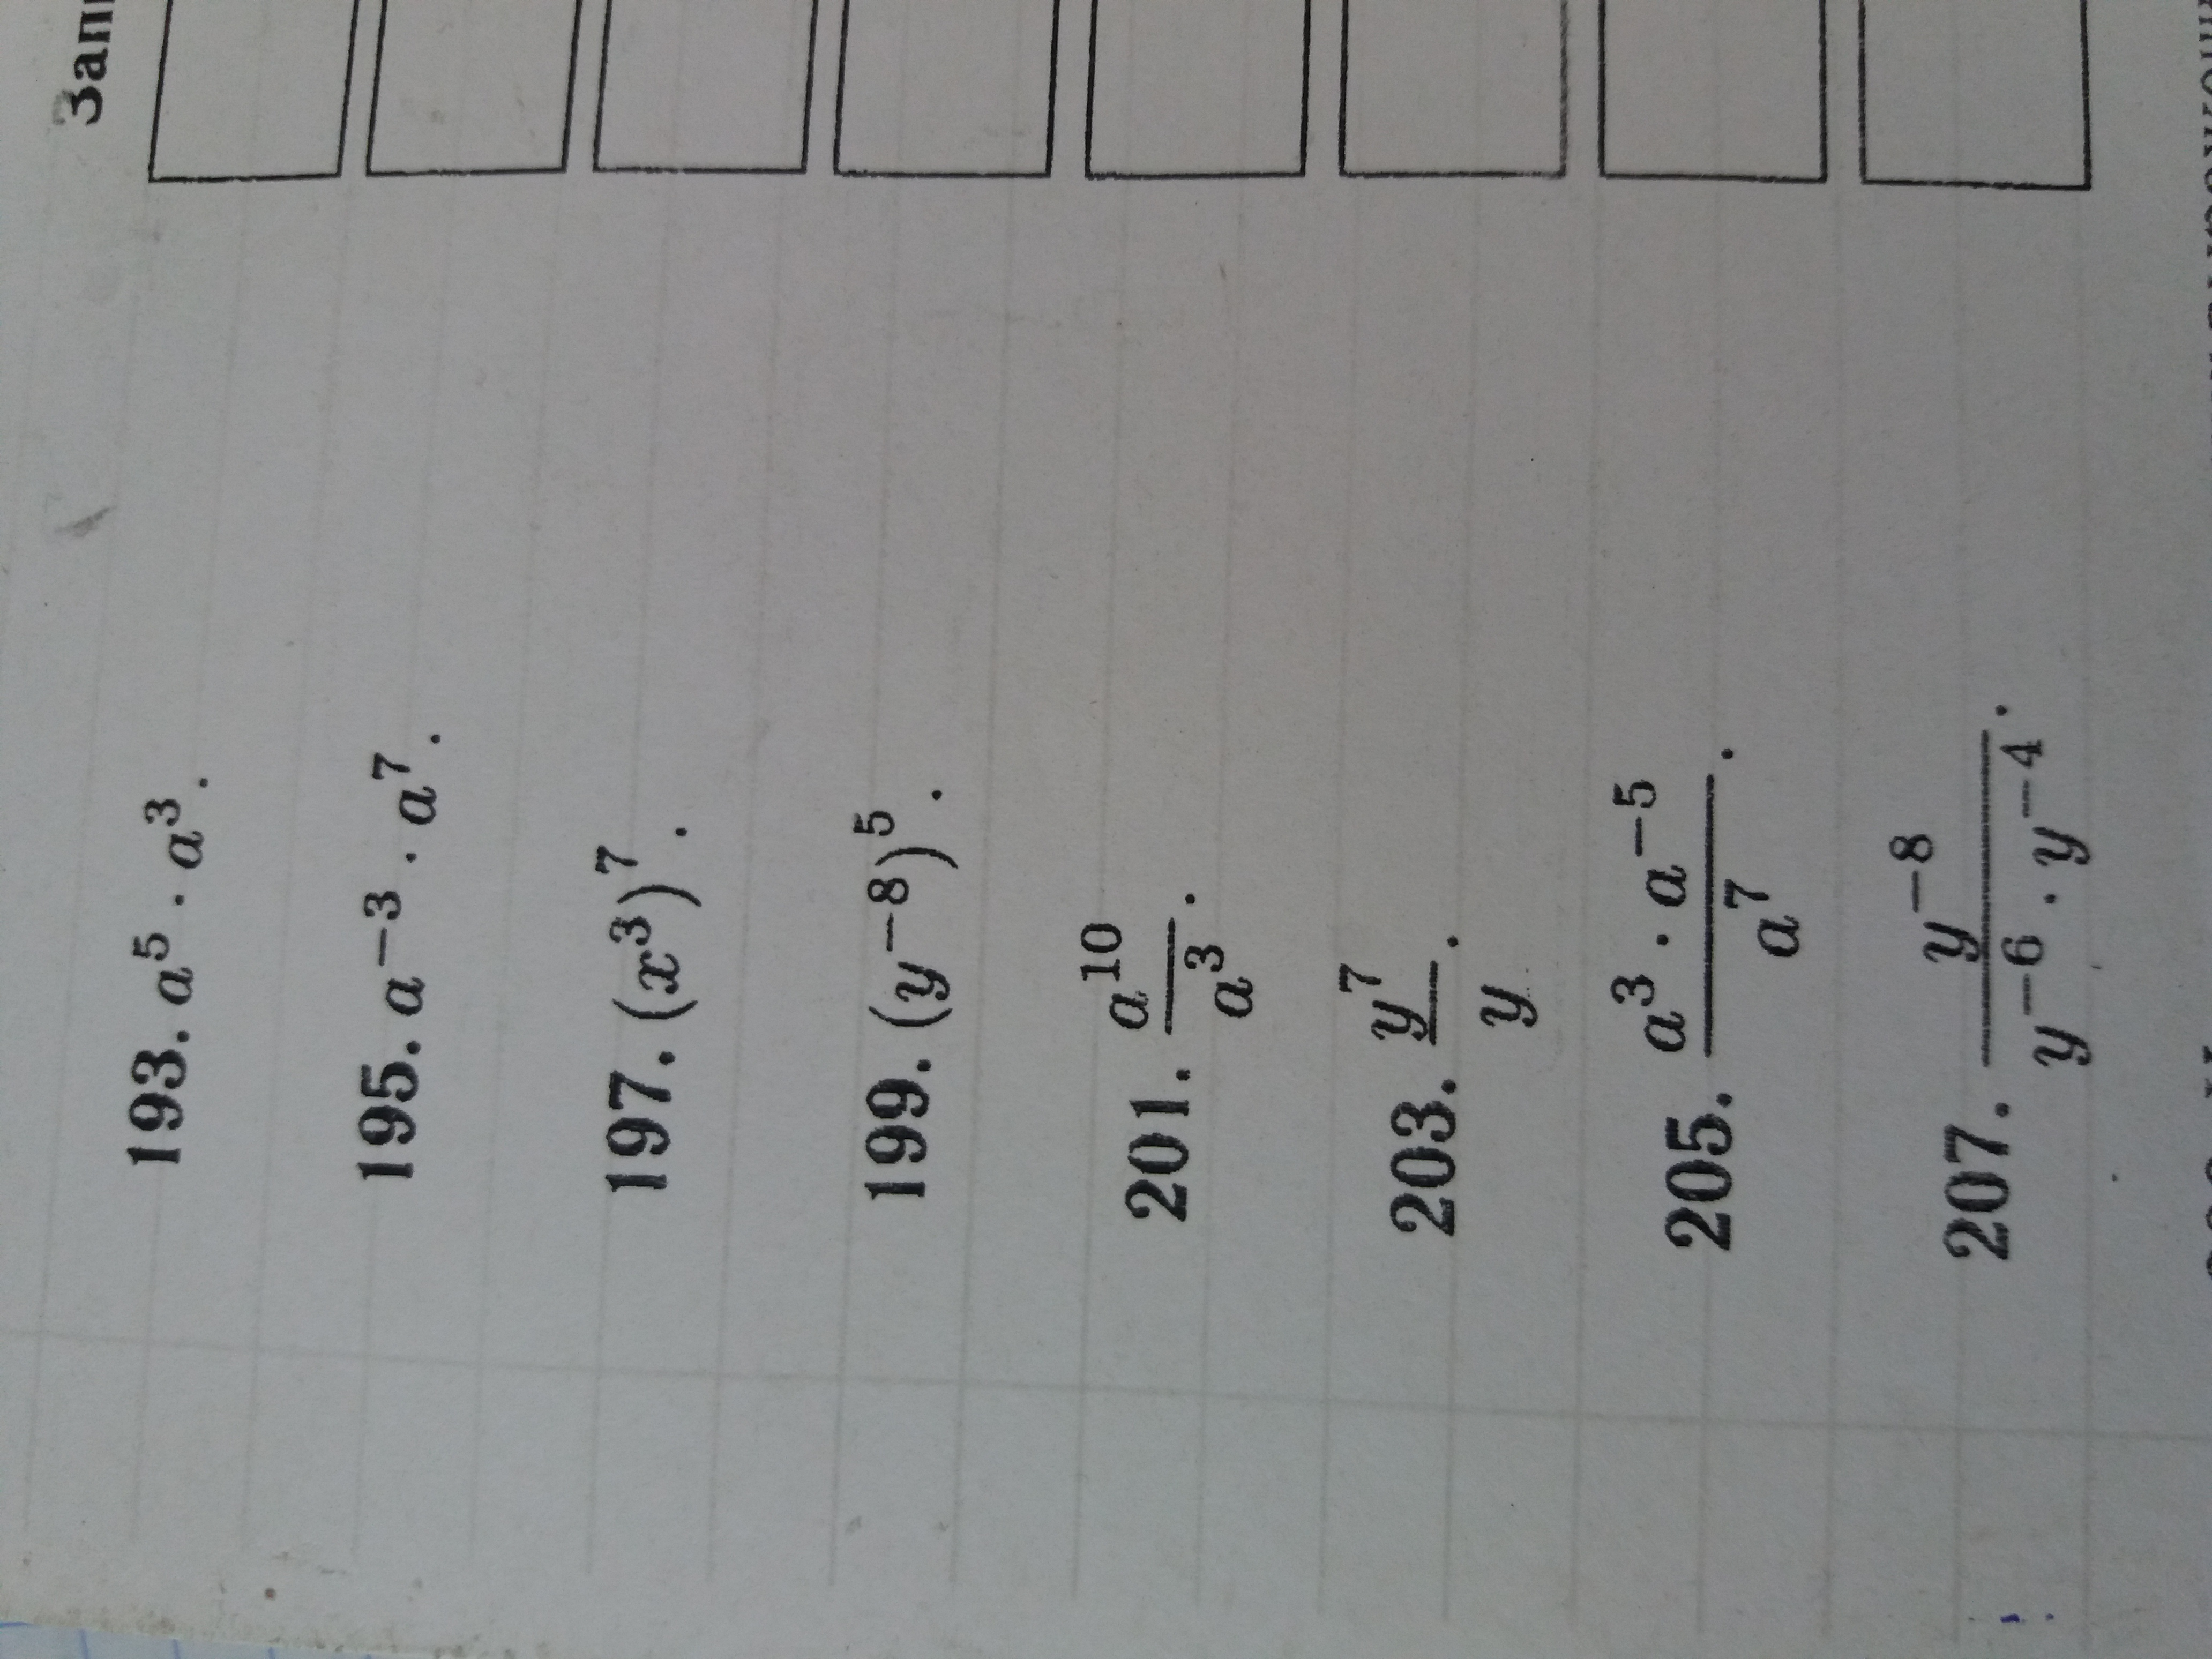 193. a⁵ · a³.
195. a⁻³ · a⁷.
197. (x³)⁷.
199. (y⁻⁸)⁵.
201. a¹⁰/a³.
203. y⁷/y.
205. (a³ · a⁻⁵)/a⁷.
207. y⁻⁸/(y⁻⁶ · y⁻⁴).